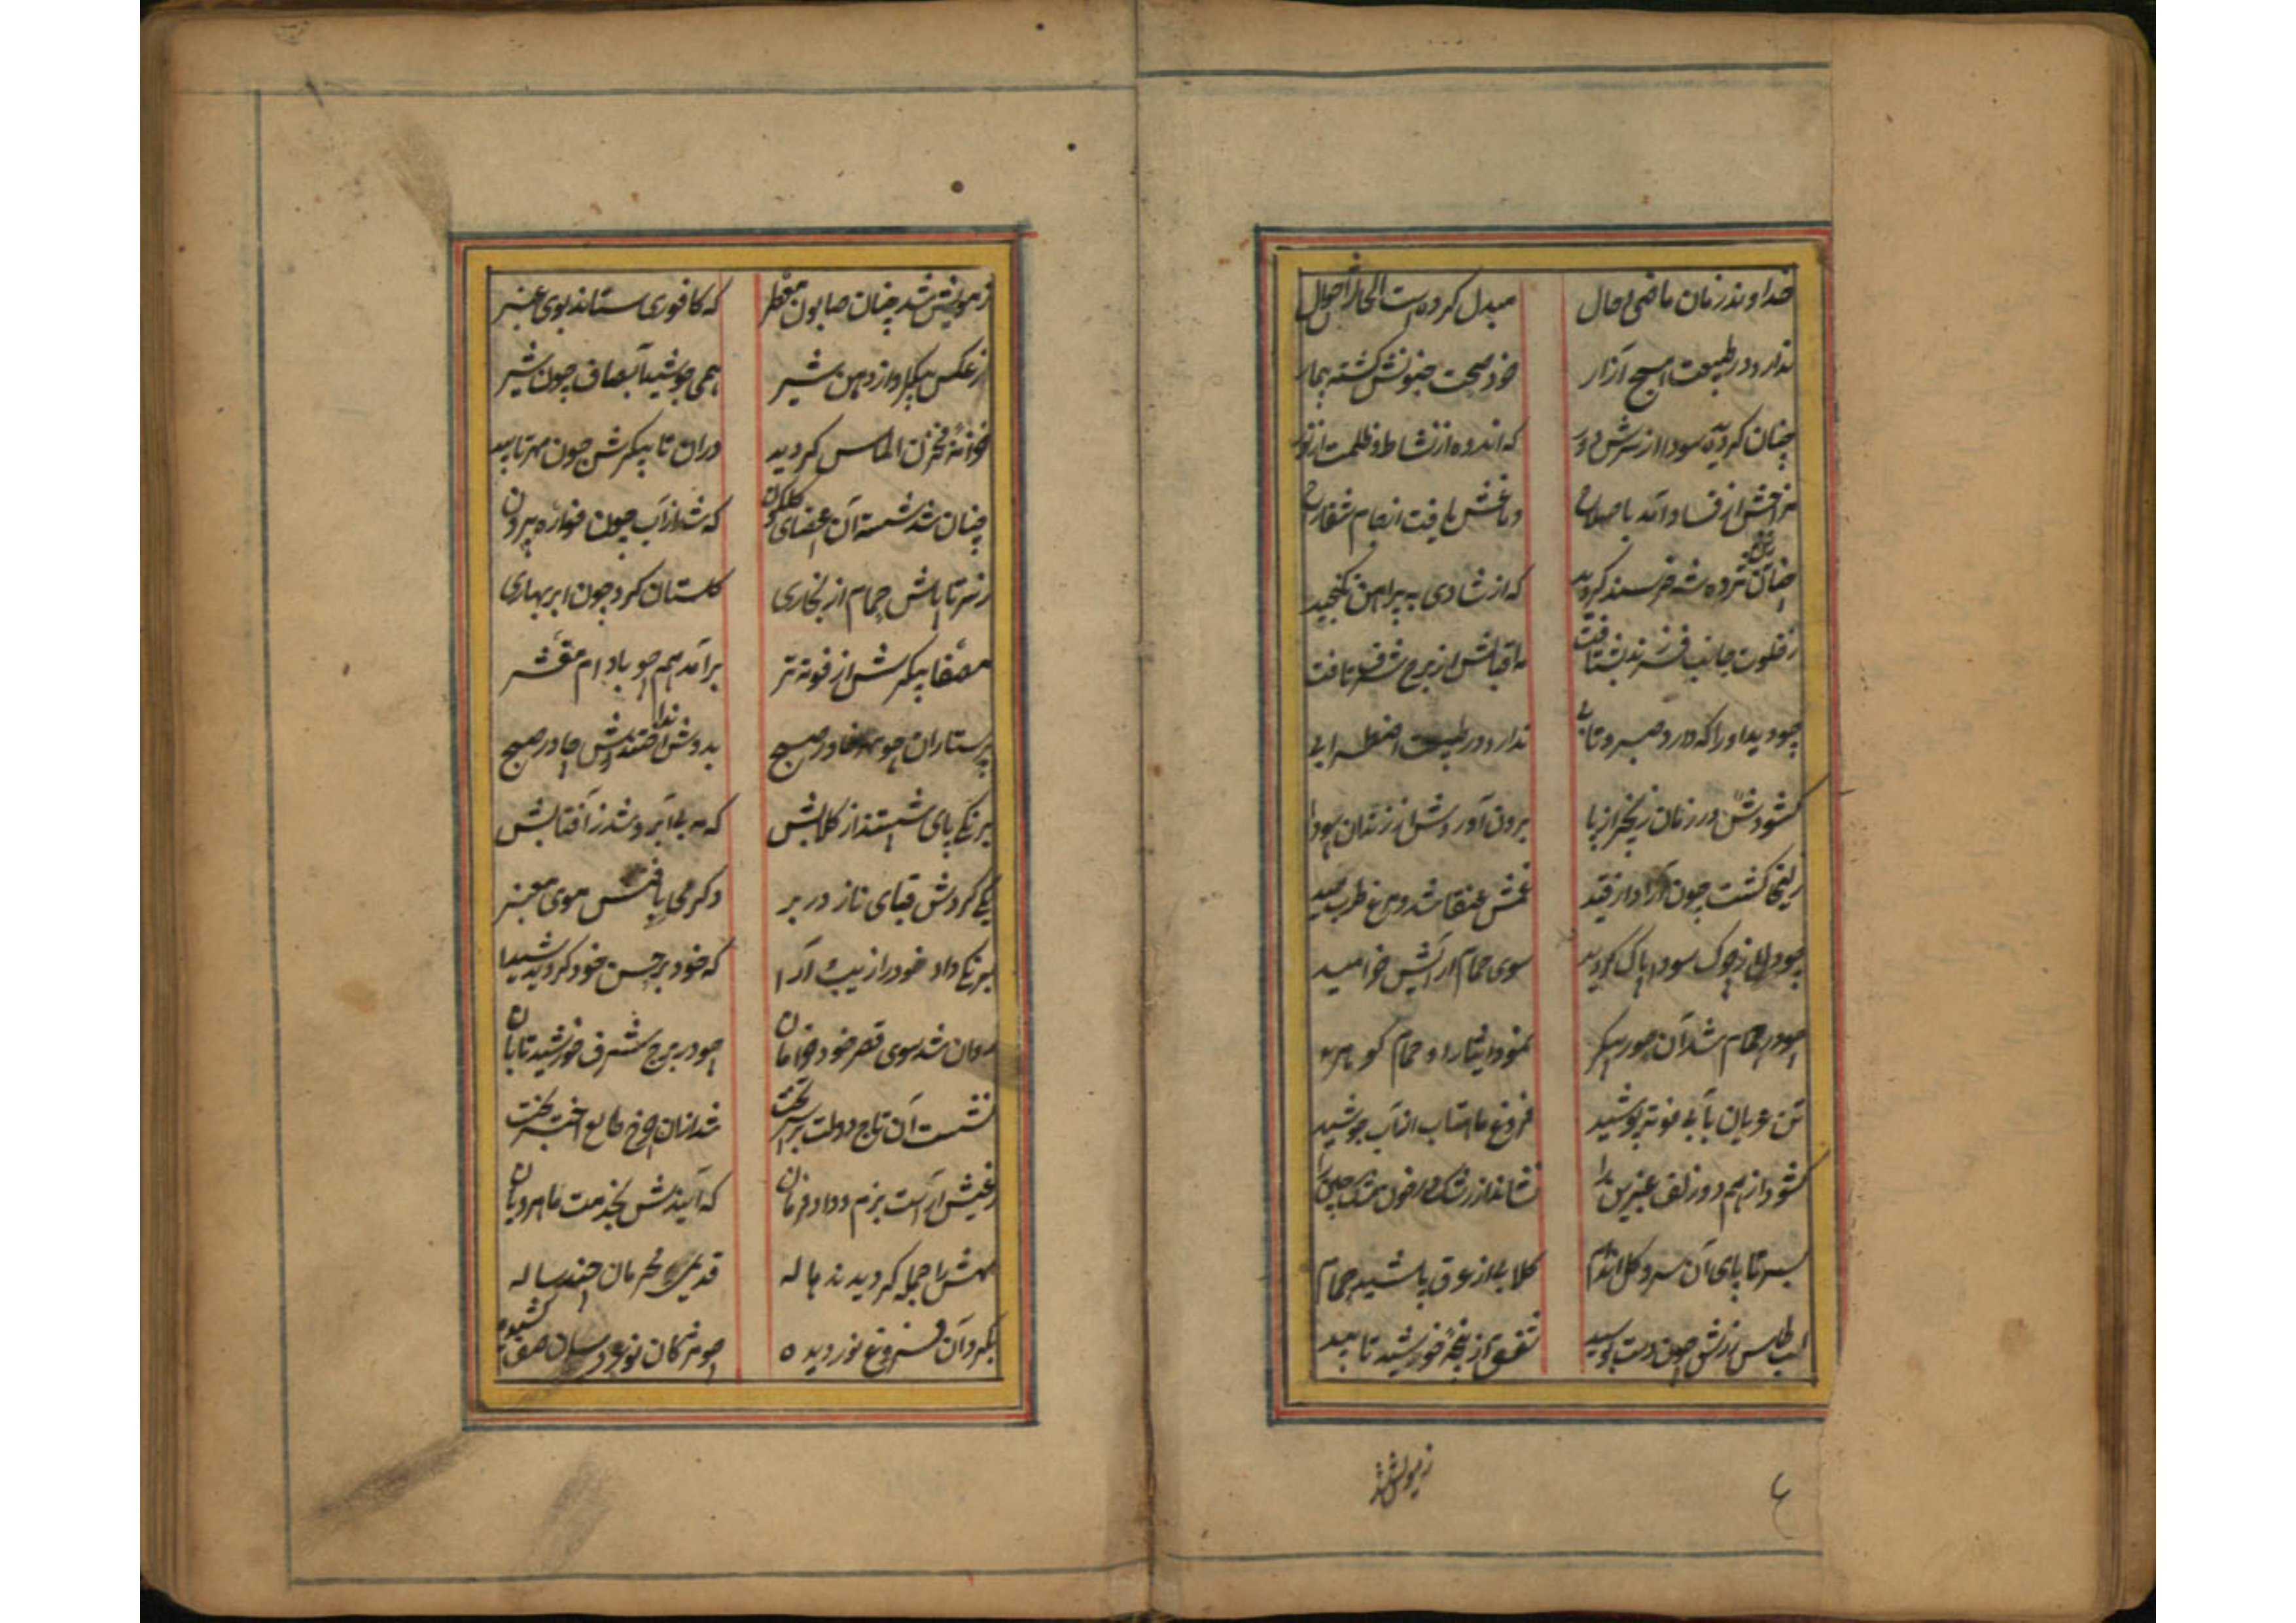 خداوند زمان ماضی و حال مبدل کرده است الحال احوال
ندارد در طبیعت هیچ آزار خود صحت جنونش گشته بیمار
چنان گردیده سودا از سرش دور که اندوه از نشاط و ظلمت از نور
مزاجش از فساد آمد باصلاح دماغش یافت
چنان زین مژده شه خرسند گردید که از شادی به پیراهن نگنجید
ز خلوت جانب فرزند بشتافت مه اقبالش از برج شرف تافت
چو دید او را که دارد صبر و تابی ندارد در طبیعت اضطرابی
گشودش در زمان زنجیر از پا برون آوردش از زندان سودا
زلیخا گشت چون آزاد از قید غمش عنقا شد و مرغ طرب صید
چو چرک سودا پاک گردید سوی حمام آرایش خرامید
چو در حمام شد آن حور پیکر نمود ایثار او حمام گوهر
تن عریان بآبی فوته پوشید فروغ ماهتاب از آب جوشید
گشود از هم دو زلف عنبرین را نشاند از رشک در خون مشک چین را
بسر تا پای آن سرو گل اندام گلابی از عرق پاشید حمام
لب طاس زرش چون دست بوسید شفق از پنجهٔ خورشید تابید
ز مویش شد
ز مویش شد چنان صابون معطر که کافوری ستاند بوی عنبر
ز عکس پیکر او از دهن شیر همی جوشید آب صاف چون شیر
خزانه مخزن الماس گردید در آن تا پیکرش چون مهر تابید
چنان شد شسته آن اعضای گلگون که شد از آب چون فواره بیرون
ز سر تا پاش حمام از بخاری گلستان کرد چون ابر بهاری
مصفا پیکرش از فوته تر برآمد همچو بادام مقشر
پرستاران چو خاور صبح بدوش انداختندش چادر صبح
برنگی پای شستند از گلابش که مه بی آبرو شد ز آفتابش
یکی کردش قبای ناز در بر دگر می بافتش موی معنبر
برنگی داد خود را زیب آرا که خود بر حسن خود گردید شیدا
روان شد سوی قصر خود خرامان چو در برج شرف خورشید تابان
نشست آن تاج دولت بر سر تخت شد از آن طالع اختر بخت
ز عیش آراست بزم و داد فرمان که آیندش بخدمت ماهرویان
مهش را جمله گردیدند هاله قدیمی محرمان چند ساله
بگرد آن فروغ نور دیده چو مژگان نو عروسان صف کشیده